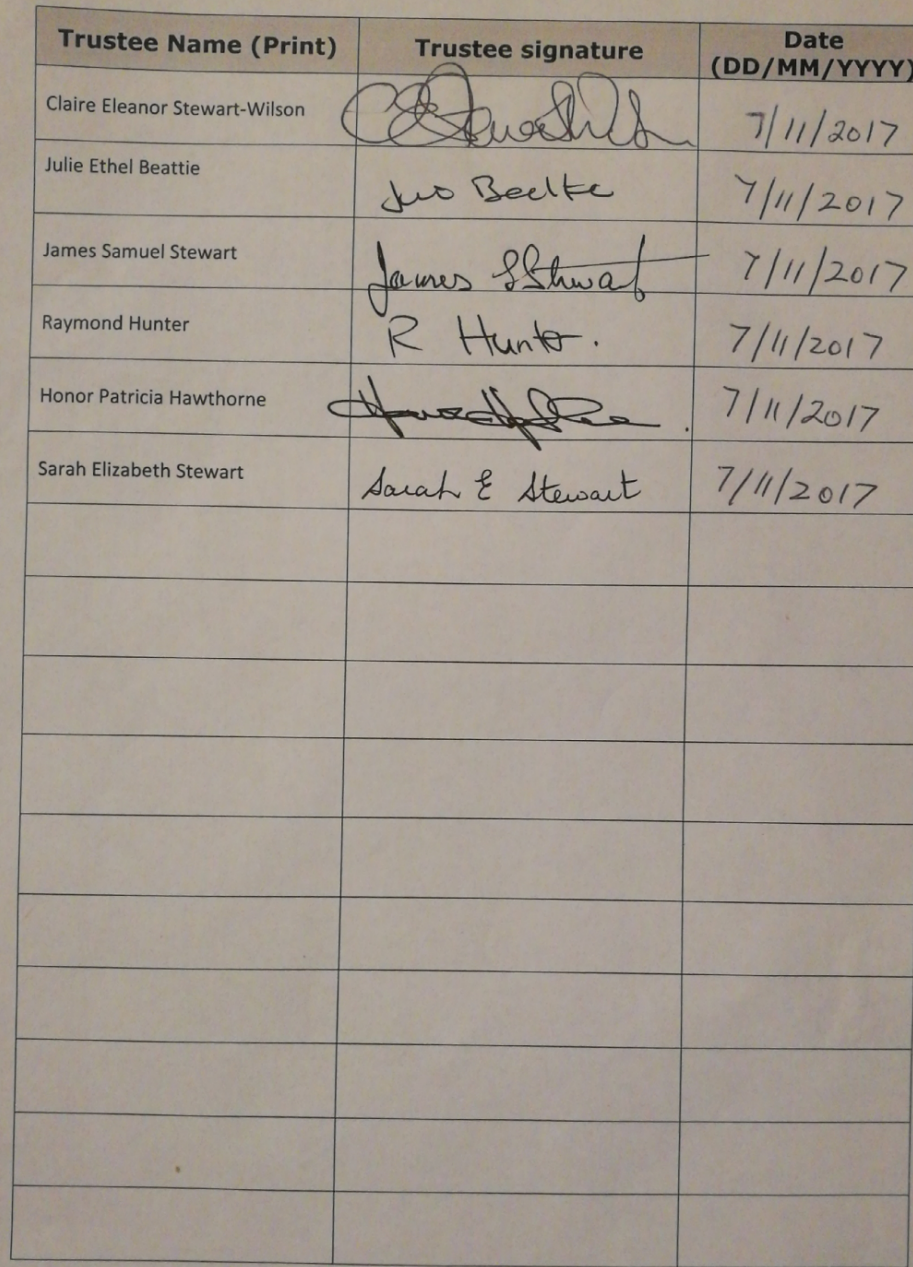 Trustee Name (Print) Trustee signature Date
(DD/MM/YYYY)
Claire Eleanor Stewart-Wilson 7/11/2017
Julie Ethel Beattie 7/11/2017
James Samuel Stewart James S Stewart 7/11/2017
Raymond Hunter R Hunter. 7/11/2017
Honor Patricia Hawthorne 7/11/2017
Sarah Elizabeth Stewart Sarah E Stewart 7/11/2017